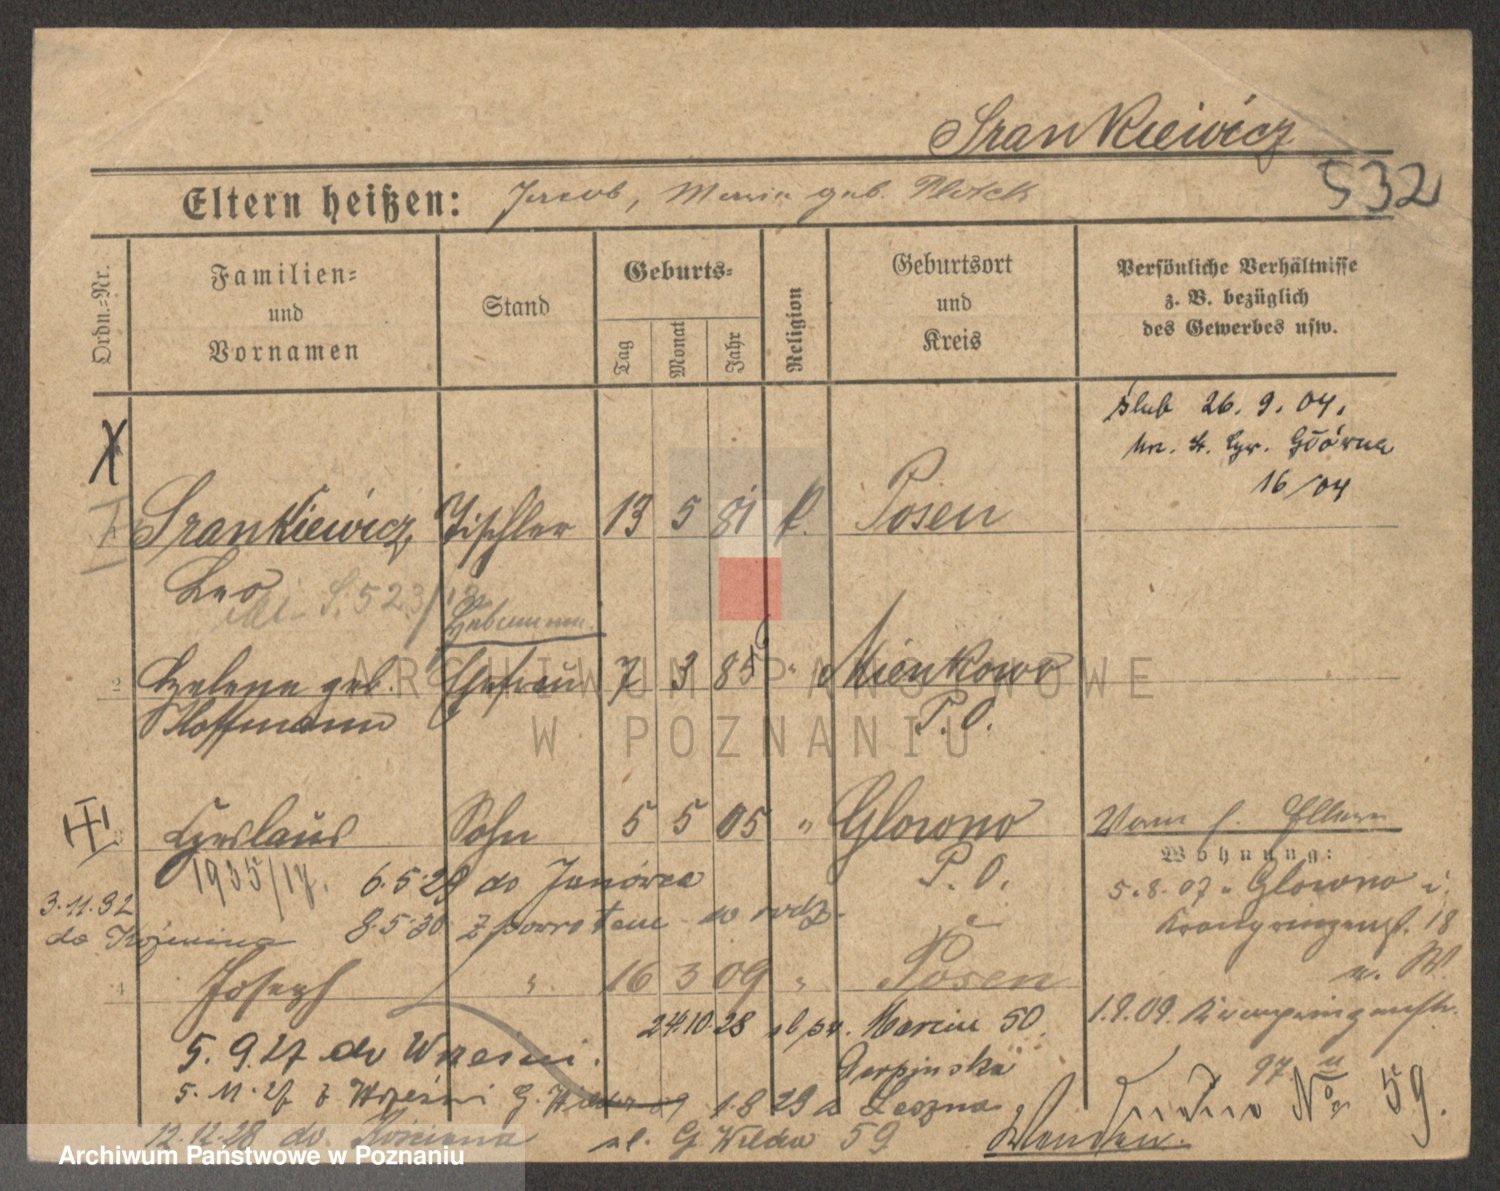 Srankiewicz
532
Eltern heißen: Jacob, Maria geb.
Ordn.=Nr.
Familien=
und
Vornamen
Stand
Geburts=
Tag
Monat
Jahr
Religion
Geburtsort
und
Kreis
Persönliche Verhältnisse
z. B. bezüglich
des Gewerbes usw.
ślub 26. 9. 04.
16/04
Srankiewicz Tischler 13 5 81 k. Posen
Leo
S. 523/12
Hebamme
2 Helene geb. Ehefrau 7 3 85 " Mienkowo
Hoffmann P. O.
3 Ceslaus Sohn 5 5 05 " Glowno
P. O.
Eltern
Wohnung:
1935/17.
6.5.29 do Janówca
8.5.30 z powrotem w rodz.
3.11.32
do Koźmina
5.8.07. Glowno
18
4 Joseph " 16 3 09 " Posen
1.9.09.
24.10.28 Marcin 50
5.9.27 do Wrześni.
5.11.27 z Wrześni G. Wilda 59 1.8.29 Leszna
97
No 59.
12.11.28 do Kościana ul. G. Wilda 59
Wenden.
ARCHIWUM PAŃSTWOWE
W POZNANIU
Archiwum Państwowe w Poznaniu